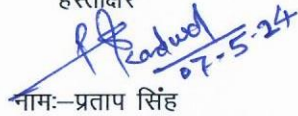 हस्ताक्षर
07-5-24
नामः–प्रताप सिंह